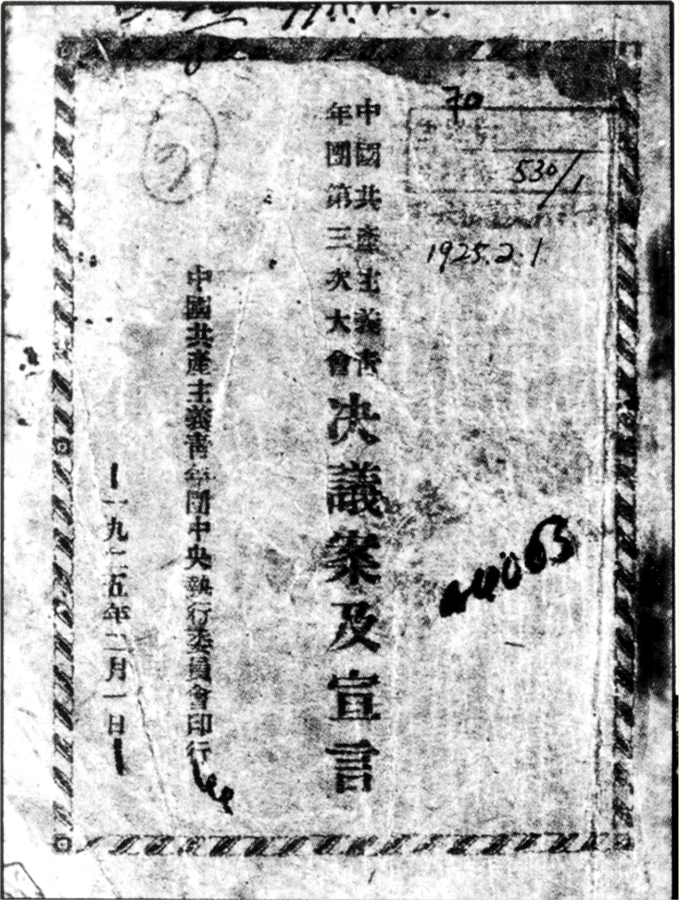 70
530/1
1925.2.1
中國共產主義青
年團第三次大會
决議案及宣言
中國共產主義青年團中央執行委員會印行
一九二五年二月一日